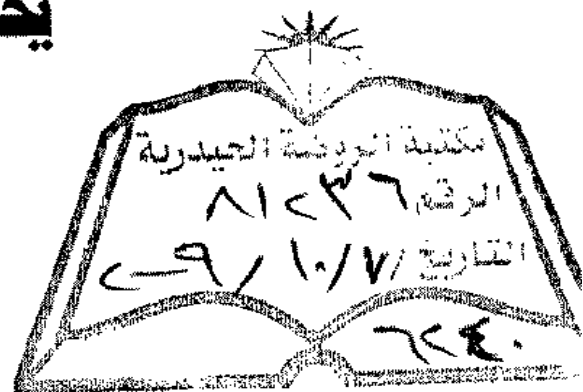 مكتبة الروضة الحيدرية
الرقم ٨١٢٣٦
التاريخ ٧/١٠/٢٠٠٩
٦٢٤٠